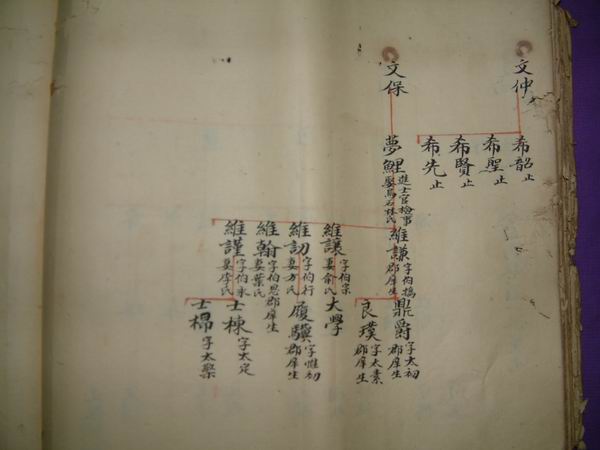 文仲
希韶止
希聖止
希賢止
希先止
文保
夢鯉
進士官檢事
維謙字伯撝郡庠生
鼎爵字太初郡庠生
良璞字太素郡庠生
維讓字伯宗妻俞氏
大學
維訒字伯行妻方氏
履驥字惟初郡庠生
維翰字伯恩郡庠生妻葉氏
維謹字伯永妻李氏
士棟字太定
士楊字太